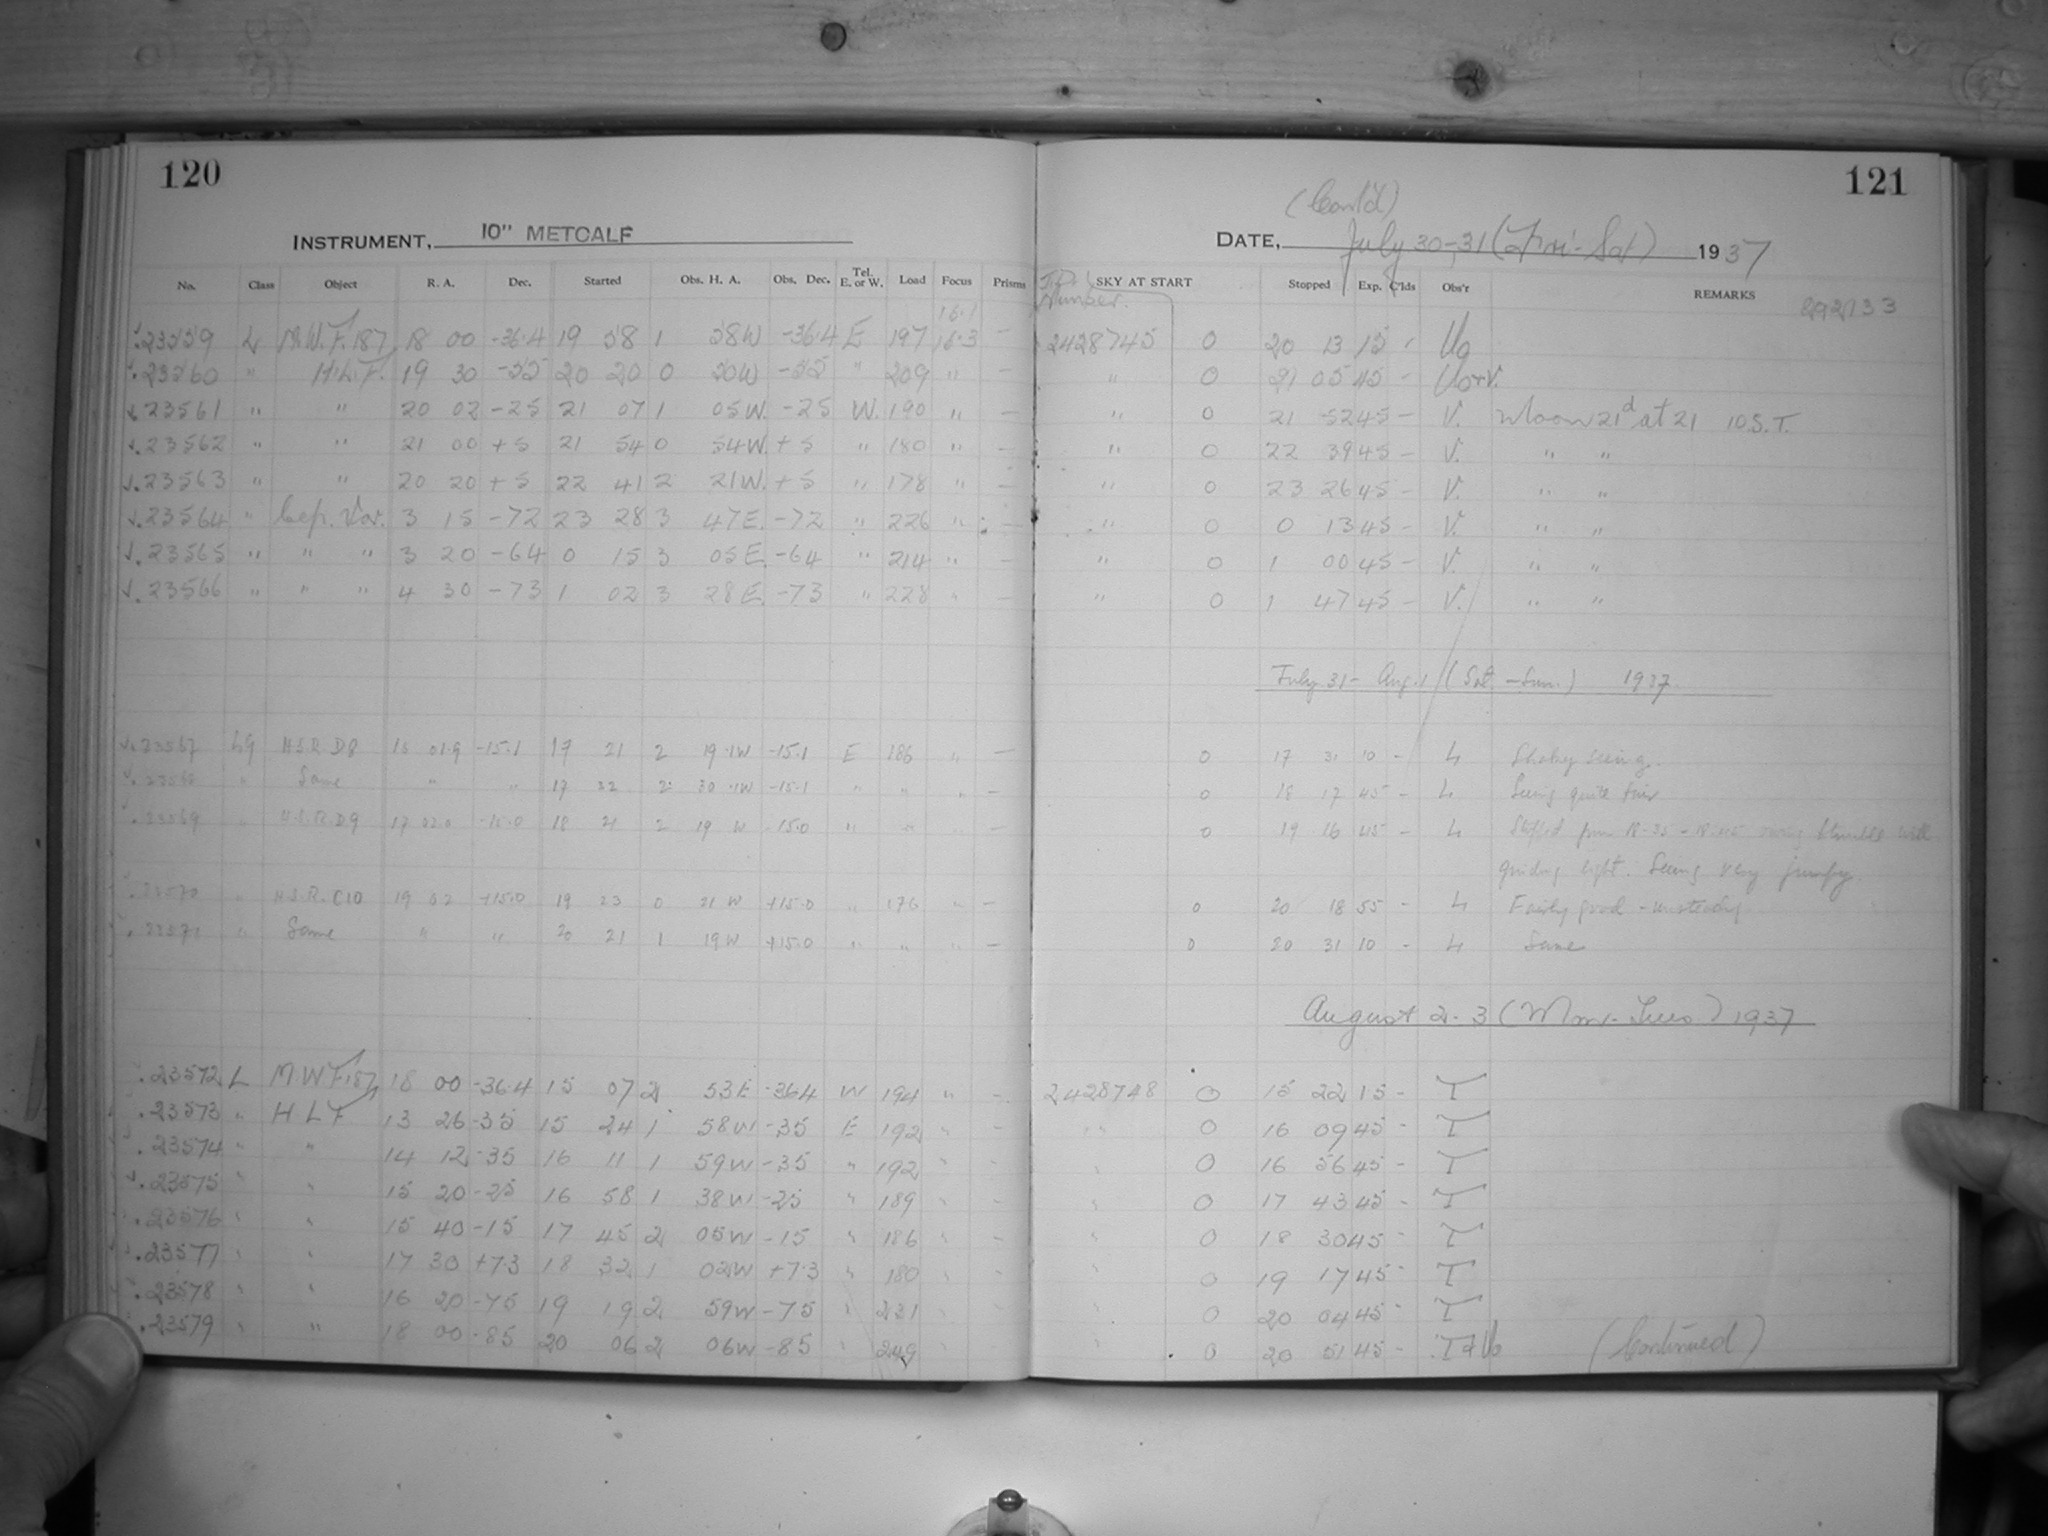 120
121
(Cont'd)
INSTRUMENT, 10" METCALF
DATE, July 30-31 (Fri-Sat) 1937
No. Class Object R. A. Dec. Started Obs. H. A. Obs. Dec. Tel. E. or W. Load Focus Prisms J.D. Number. SKY AT START Stopped Exp. C'lds Obs'r REMARKS
16.1
23559 L M.W.F. 187 18 00 -36.4 19 58 1 58W -36.4 E 197 16.3 — 2428745 0 20 13 15 Uo
23560 " H.L.F. 19 30 -55 20 20 0 50W -55 " 209 " — " 0 21 05 45 - Uo+V.
23561 " " 20 02 -25 21 07 1 05W. -25 W. 190 " — " 0 21 52 45 - V. Moon 21d at 21 10 S.T.
23562 " " 21 00 +5 21 54 0 54W. +5 " 180 " — " 0 22 39 45 - V. " "
23563 " " 20 20 +5 22 41 2 21W. +5 " 178 " — " 0 23 26 45 - V. " "
23564 " Cep. Var. 3 15 -72 23 28 3 47E. -72 " 226 " — " 0 0 13 45 - V. " "
23565 " " " 3 20 -64 0 15 3 05E. -64 " 214 " — " 0 1 00 45 - V. " "
23566 " " " 4 30 -73 1 02 3 28E. -73 " 228 " — " 0 1 47 45 - V. " "
July 31 - Aug. 1 (Sat. - Sun.) 1937.
23567 Lg H.S.R. D8 15 01.9 -15.1 17 21 2 19.1W -15.1 E 186 " — 0 17 31 10 - L Shaky seeing.
23568 " Same " " 17 32 2 30.1W -15.1 " " " — 0 18 17 45 - L Seeing quite fair
23569 " H.S.R. D9 -15.0 18 21 2 19 W -15.0 " " — 0 19 16 45 - L Stopped from 18-35 - 18-45 owing trouble with
guiding light. Seeing very jumpy.
23570 " H.S.R. C10 19 02 +15.0 19 23 0 21 W +15.0 " 176 " — 0 20 18 55 - L Fairly good - unsteady
23571 " Same " " 20 21 1 19W +15.0 " " " — 0 20 31 10 - L Same
August 2-3 (Mon-Tues) 1937
23572 L M.W.F. 187 18 00 -36.4 15 07 2 53E -36.4 W 194 " - 2428748 0 15 22 15 - T
23573 " H L F 13 26 -35 15 24 1 58W -35 E 192 " - " 0 16 09 45 - T
23574 " " 14 12 -35 16 11 1 59W -35 " 192 " - " 0 16 56 45 - T
23575 " " 15 20 -25 16 58 1 38W -25 " 189 " - " 0 17 43 45 - T
23576 " " 15 40 -15 17 45 2 05W -15 " 186 " - " 0 18 30 45 - T
23577 " " 17 30 +7.3 18 32 1 02W +7.3 " 180 " - " 0 19 17 45 - T
23578 " " 16 20 -75 19 19 2 59W -75 " 231 " - " 0 20 04 45 - T
23579 " " 18 00 -85 20 06 2 06W -85 " 249 " - " 0 20 51 45 - T+Uo (Continued)